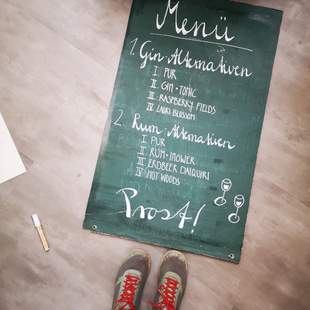 Menü
1. Gin-Alternativen
I PUR
II GIN + TONIC
III RASPBERRY FIELDS
IV LAURI BLOSSOM
2. Rum-Alternativen
I PUR
II RUM + INGWER
III ERDBEER DAIQUIRI
IV HOT WOODS
Prost!